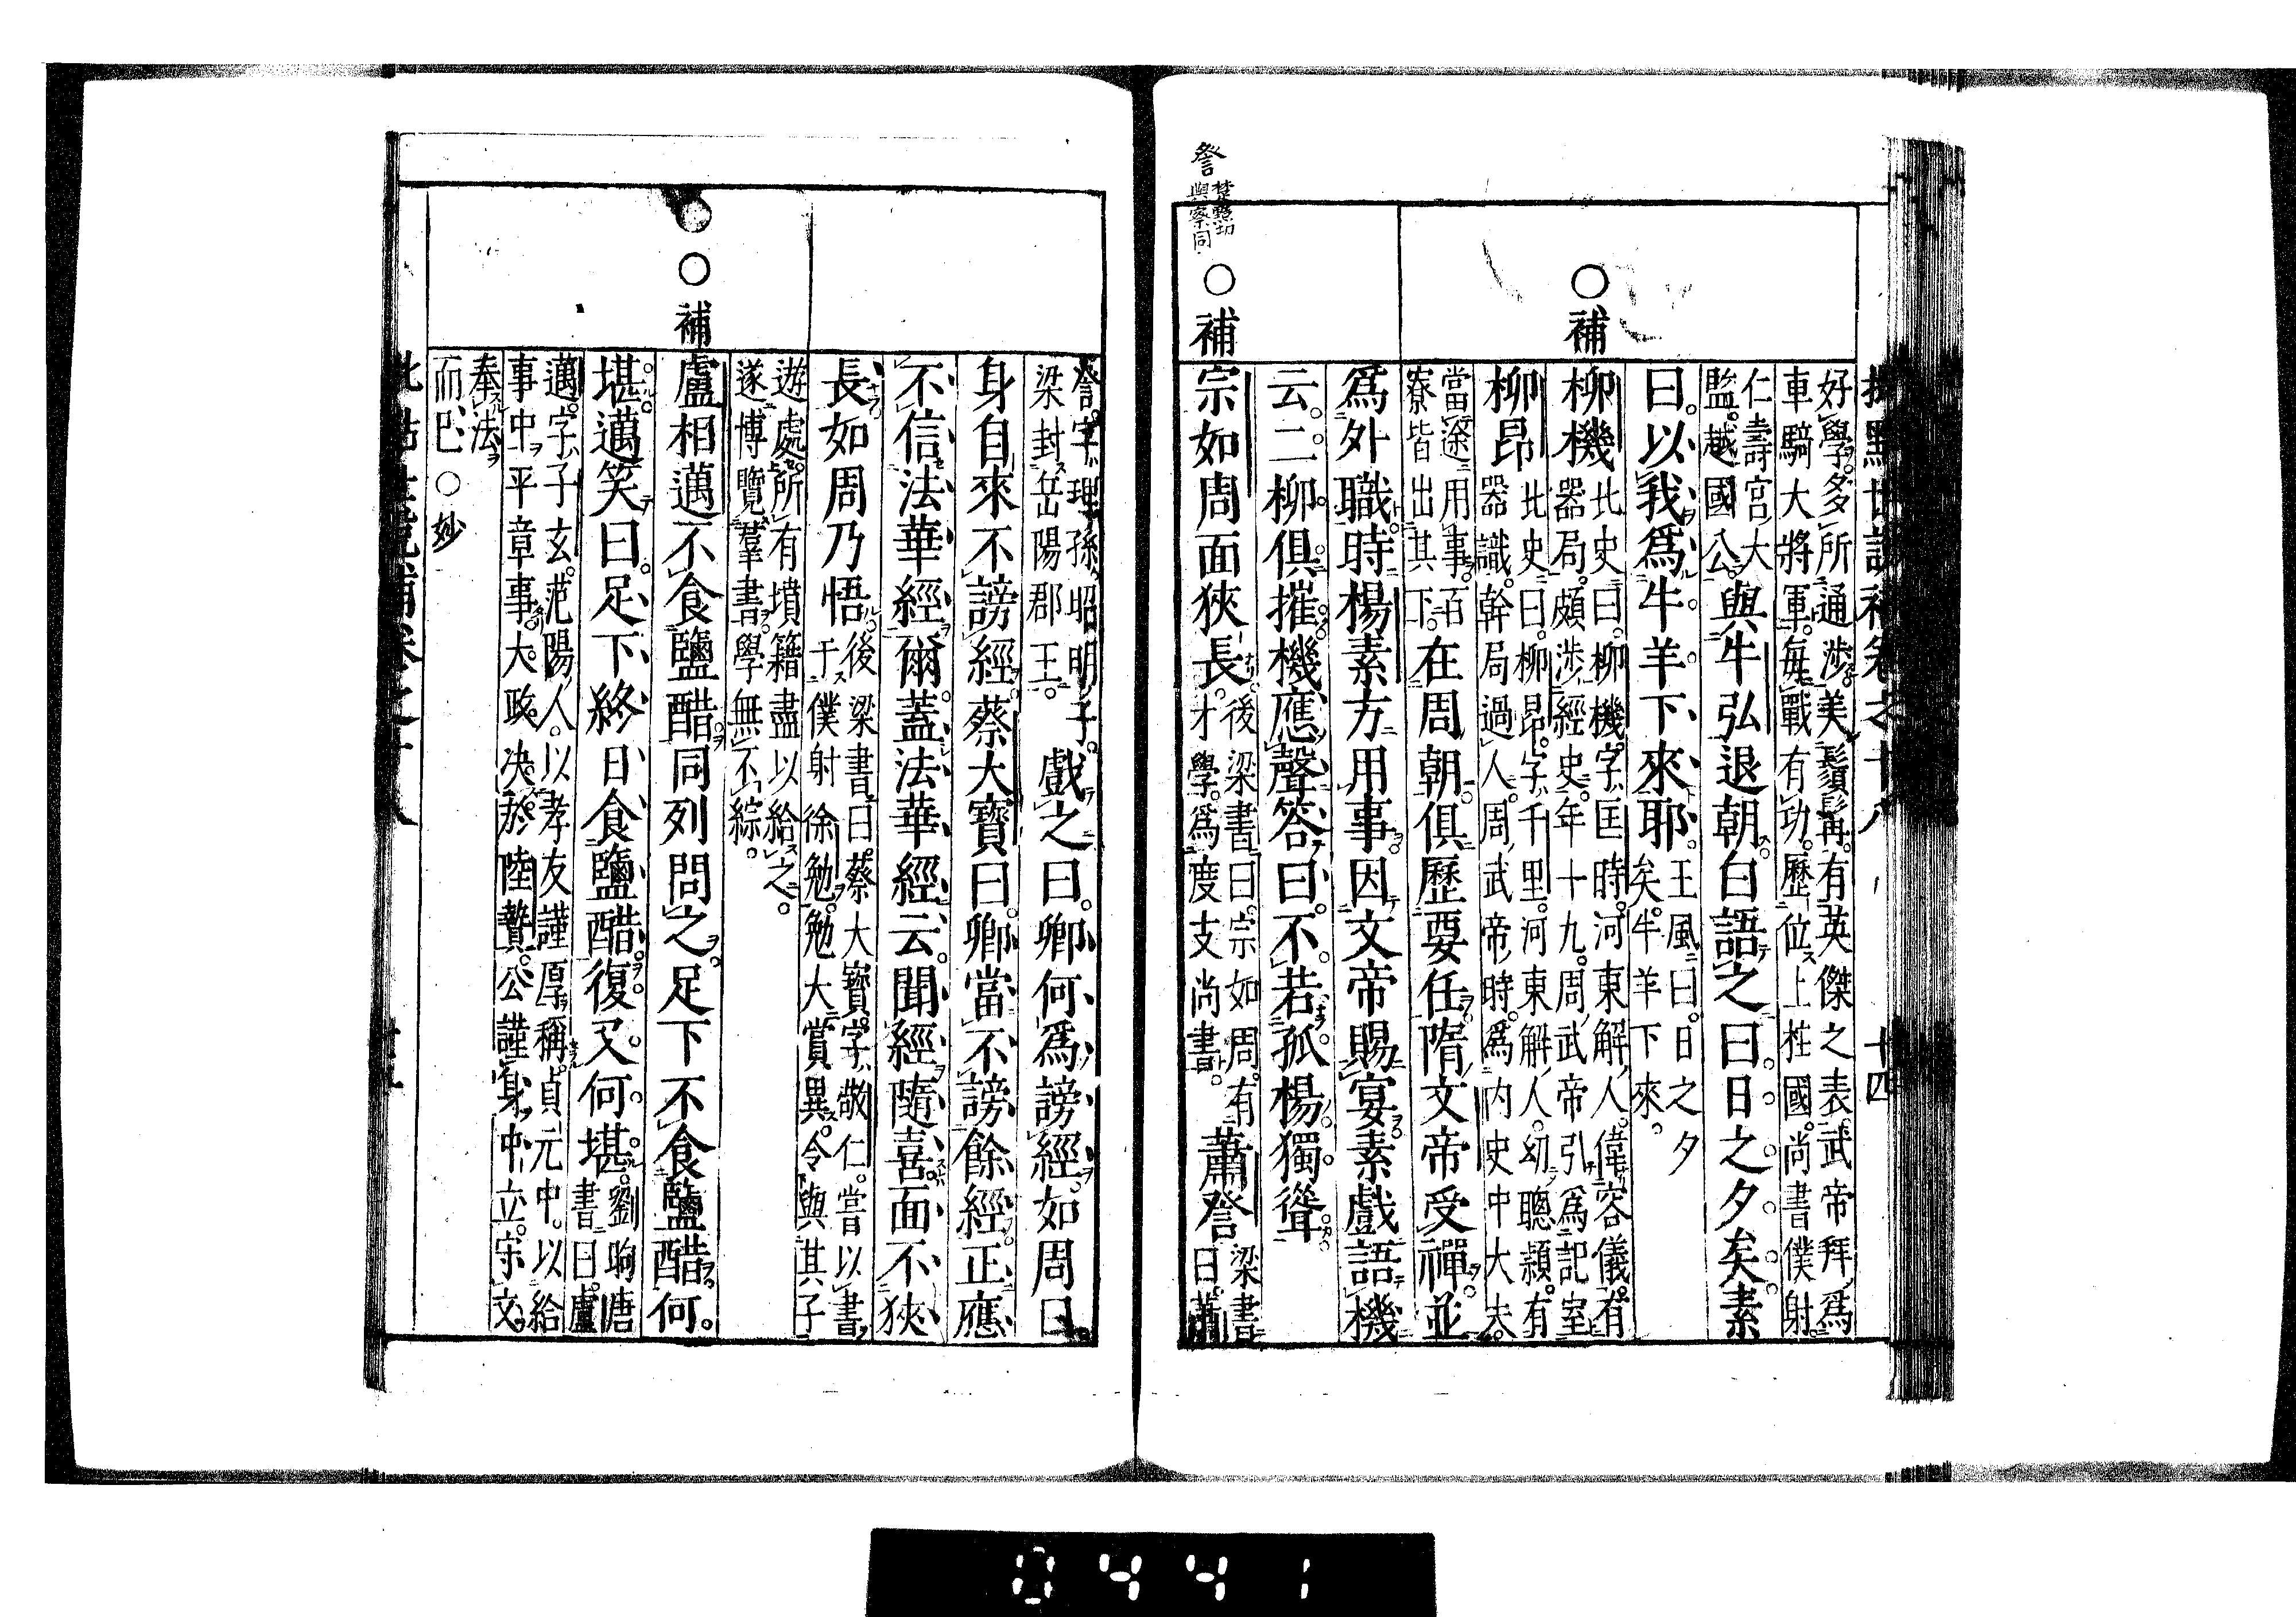 批點世說補卷之十八 十四
好學多所通涉美鬚髯有英傑之表武帝拜爲
車騎大將軍每戰有功歷位上柱國尚書僕射
仁壽宮大
監越國公與牛弘退朝白語之曰日之夕矣素
曰以我爲牛羊下來耶王風曰日之夕
矣牛羊下來
○補
柳機北史曰柳機字匡時河東解人偉容儀有
器局頗涉經史年十九周武帝引爲記室
柳昂北史曰柳昂字千里河東解人幼聰穎有
器識幹局過人周武帝時爲內史中大夫
當途用事百
寮皆出其下在周朝俱歷要任隋文帝受禪並
爲外職時楊素方用事因文帝賜宴素戲語機
云二柳俱摧機應聲答曰不若孤楊獨聳
詧楚黠切
與察同
○補
宗如周面狹長後梁書曰宗如周有
才學爲度支尚書蕭詧梁書
曰蕭
詧字理孫昭明子
梁封岳陽郡王戲之曰卿何爲謗經如周曰
身自來不謗經蔡大寶曰卿當不謗餘經正應
不信法華經爾蓋法華經云聞經隨喜面不狹
長如周乃悟後梁書曰蔡大寶字敬仁嘗以書
于僕射徐勉勉大賞異令與其子
遊處所有墳籍盡以給之
遂博覽羣書學無不綜
○補
盧相邁不食鹽醋同列問之足下不食鹽醋何
堪邁笑曰足下終日食鹽醋復又何堪劉昫唐
書曰盧
邁字子玄范陽人以孝友謹厚稱貞元中以給
事中平章事大政決於陸贄公謹身中立守文
奉法
而已○妙
批點世說補卷之十八